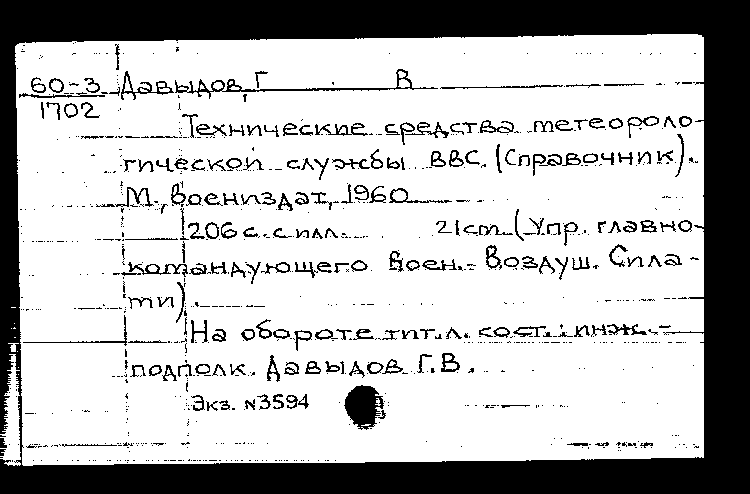 60-3 Давыдов, Г В
1702
Технические средства метеороло-
гической службы ВВС. (Справочник).
М., Воениздат, 1960
206 с. с илл. 21 cm (Упр. главно-
командующего Воен.- Воздуш. Сила-
ми).
На обороте тит. л. сост.: инж.-
подполк. Давыдов Г.В.
Экз. N3594